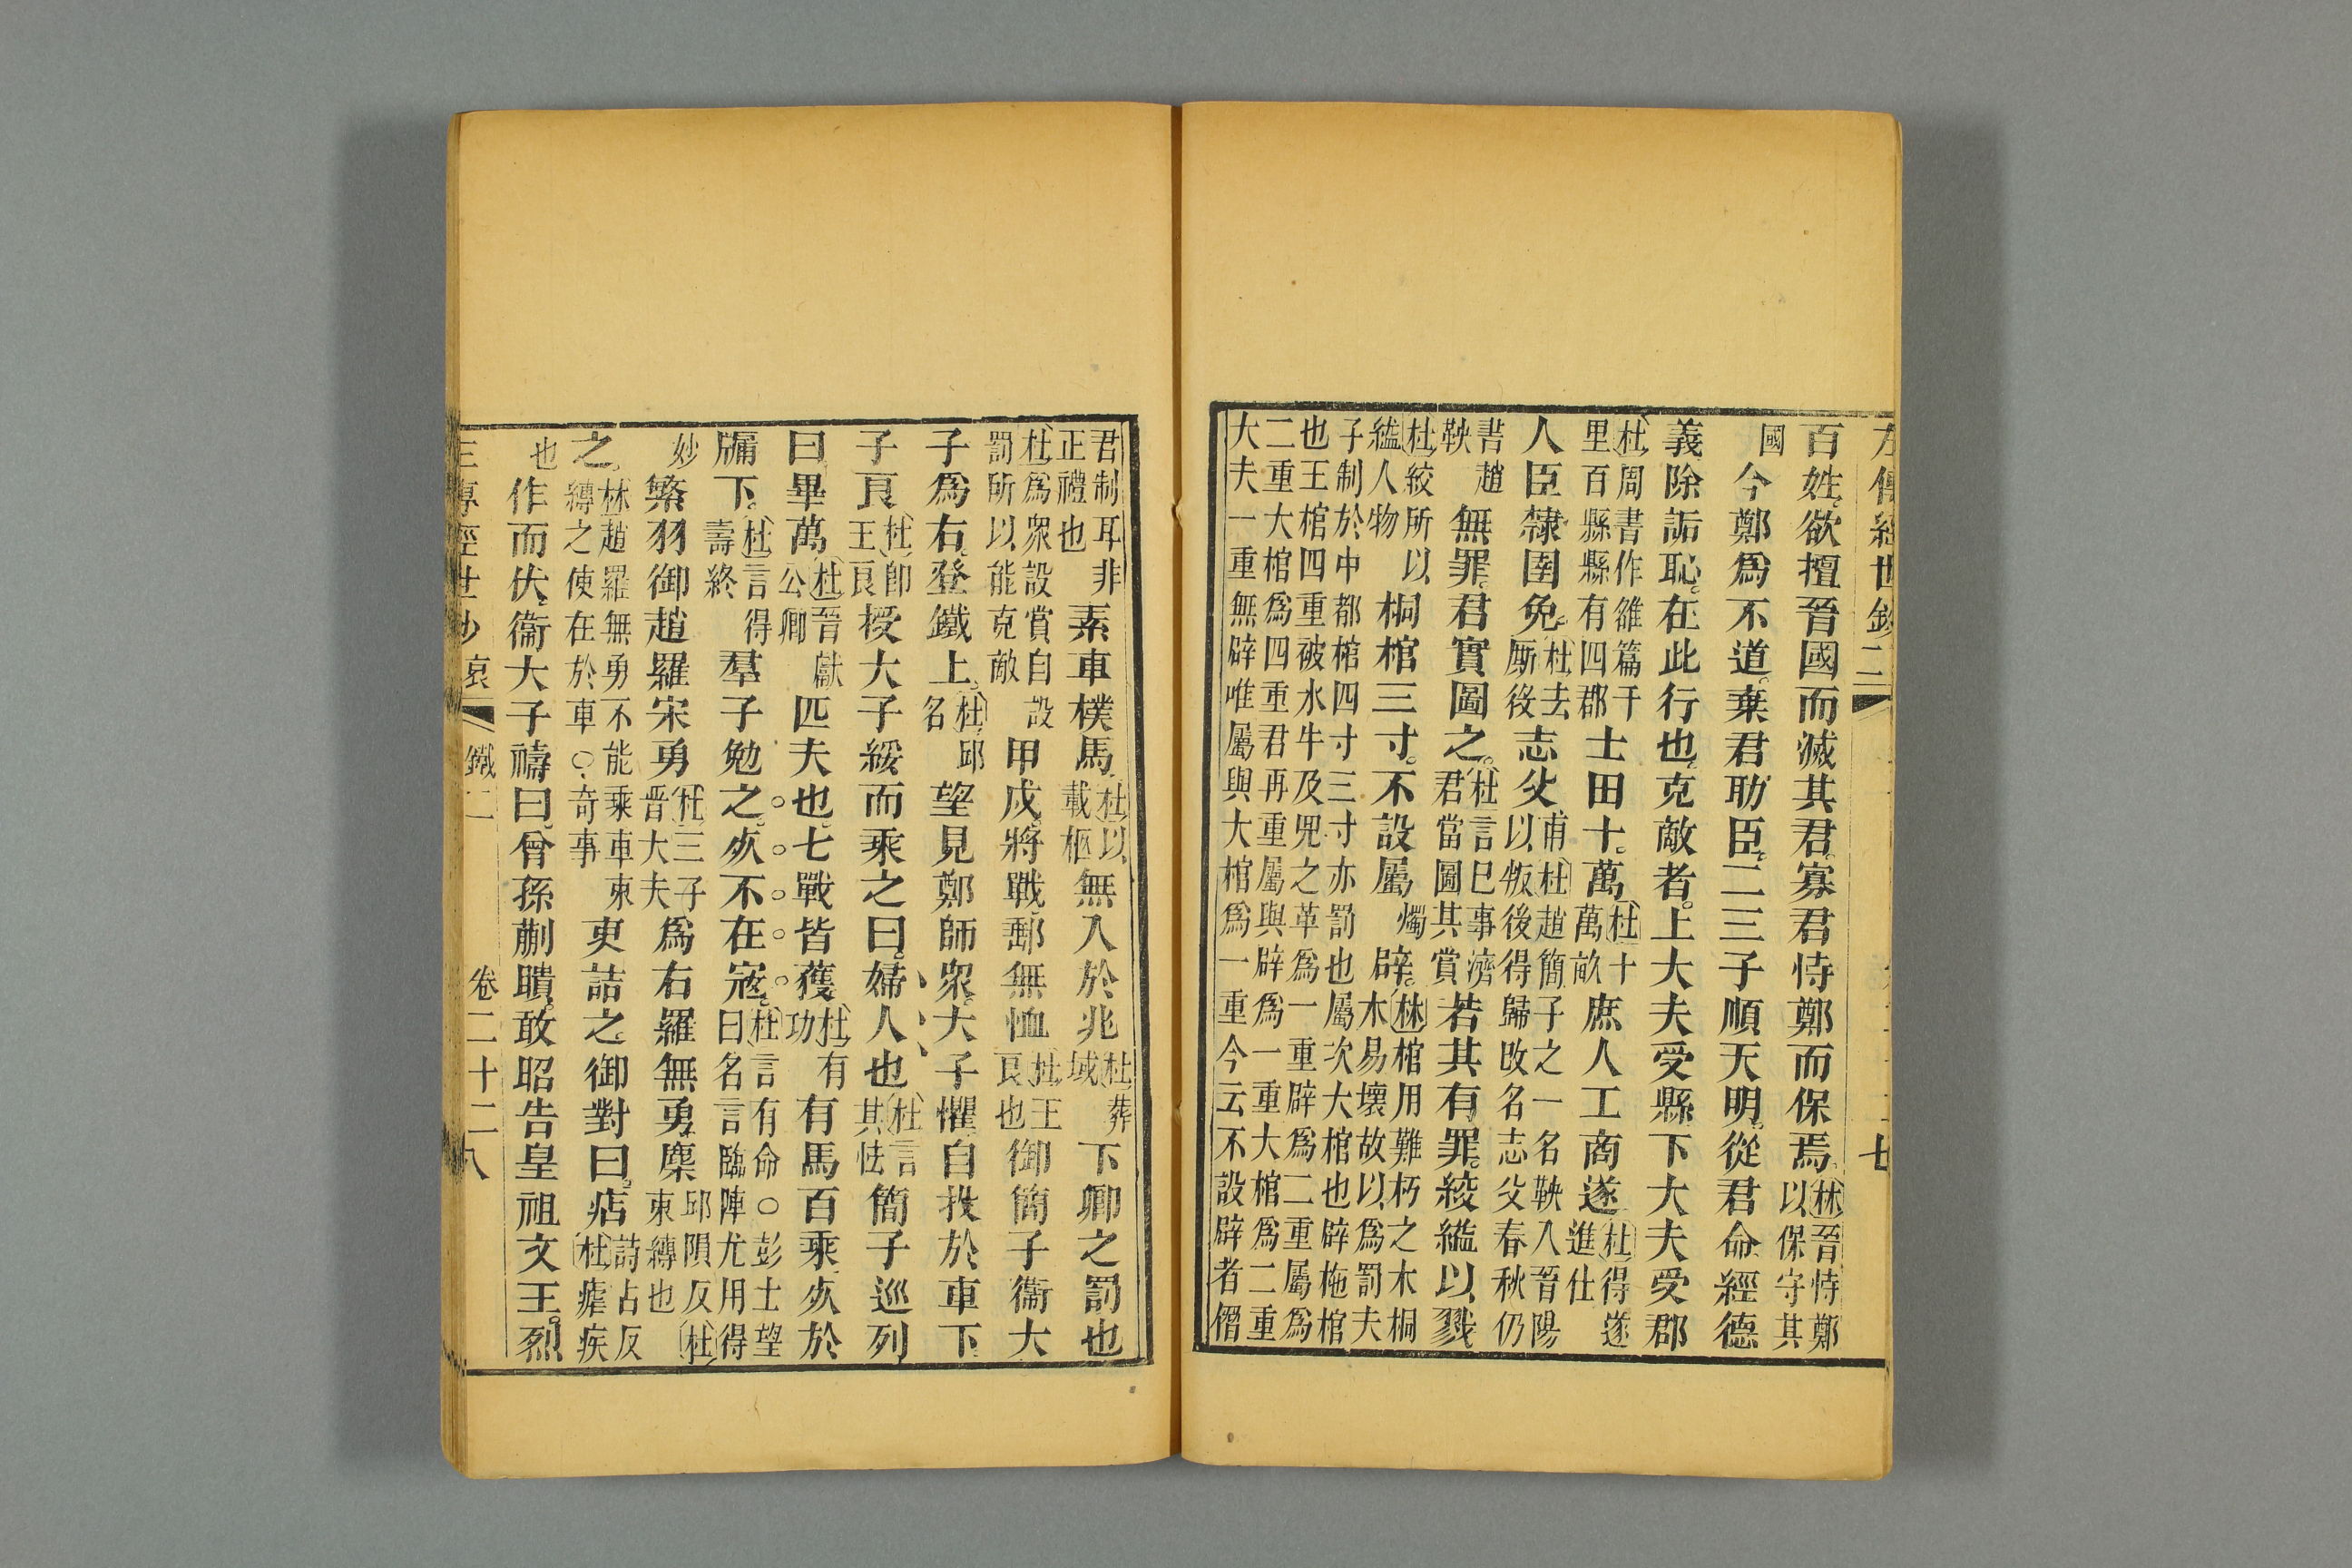 左傳經世鈔二
七
百姓欲擅晉國而滅其君寡君恃鄭而保焉林晉恃鄭以保守其
國今鄭爲不道棄君助臣二三子順天明從君命經德
義除詬恥在此行也克敵者上大夫受縣下大夫受郡
杜周書作雒篇千里百縣縣有四郡士田十萬杜十萬畝庶人工商遂杜得遂進仕
人臣隸圉免杜去厮役志父甫杜趙簡子之一名鞅入晉陽以叛後得歸改名志父春秋仍
書趙鞅無罪君實圖之杜言巳事濟君當圖其賞若其有罪絞縊以戮
杜絞所以縊人物桐棺三寸不設屬燭辟林棺用難朽之木桐木易壞故以爲罰夫
子制於中都棺四寸三寸亦罰也屬次大棺也辟柂棺
也王棺四重被水牛及兕之革爲一重辟爲二重屬爲
二重大棺爲四重君再重屬與辟爲一重大棺爲二重
大夫一重無辟唯屬與大棺爲一重今云不設辟者僭
君制耳非正禮也素車樸馬杜以載柩無入於兆杜葬域下卿之罰也
杜爲衆設賞自設罰所以能克敵甲戌將戰郵無恤杜王良也御簡子衞大
子爲右登鐵上杜邱名望見鄭師衆大子懼自投於車下
子良杜卽王良授大子綏而乘之曰婦人也杜言其怯簡子巡列
曰畢萬杜晉獻公卿匹夫也七戰皆獲杜有功有馬百乘死於
牖下杜言得壽終羣子勉之死不在寇杜言有命○彭士望曰名言臨陣尤用得
妙繁羽御趙羅宋勇杜三子晋大夫爲右羅無勇麇邱隕反杜束縛也
之林趙羅無勇不能乘車束縛之使在於車○奇事吏詰之御對曰痁詩占反杜瘧疾
也作而伏衞大子禱曰曾孫蒯聵敢昭告皇祖文王烈
哀
鐵二
卷二十二
八